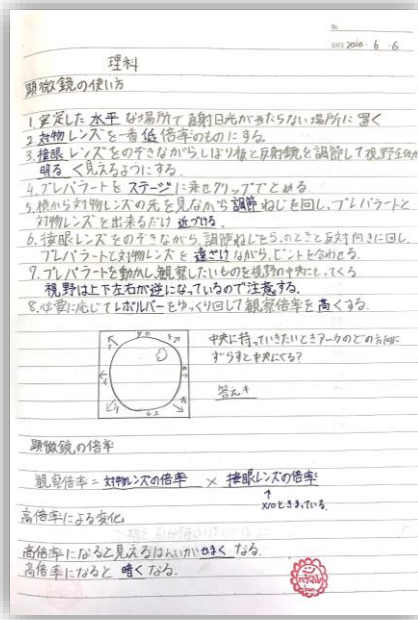 DATE 2020・6・6
理科
顕微鏡の使い方
1 安定した 水平 な場所で 直射日光が当たらない場所に 置く
2 対物 レンズを一番 低 倍率のものにする。
3. 接眼 レンズをのぞきながらしぼり板と反射鏡を調節して視野全体が
明る く見えるようにする。
4. プレパラートを ステージ に乗せクリップでとめる。
5. 横から対物レンズの先を見ながら 調節 ねじを回し、プレパラートと
対物レンズを出来るだけ 近づける。
6. 接眼レンズをのぞきながら、調節ねじを5.のときと反対向きに回し、
プレパラートと対物レンズを 遠ざけ ながら、ピントを合わせる。
7. プレパラートを動かし、観察したいものを視野の中央にもってくる
視野は上下左右が逆になっているので注意する。
8. 必要に応じて レボルバー をゆっくり回して観察倍率を 高く する。
中央に持っていきたいときア〜クのどの方向に
ずらすと中央にくる?
答え キ
顕微鏡の倍率
観察倍率 = 対物レンズの倍率 × 接眼レンズの倍率
↑
×10ときまっている
高倍率による変化
高倍率になると見えるはんいが せまく なる。
高倍率になると 暗く なる.